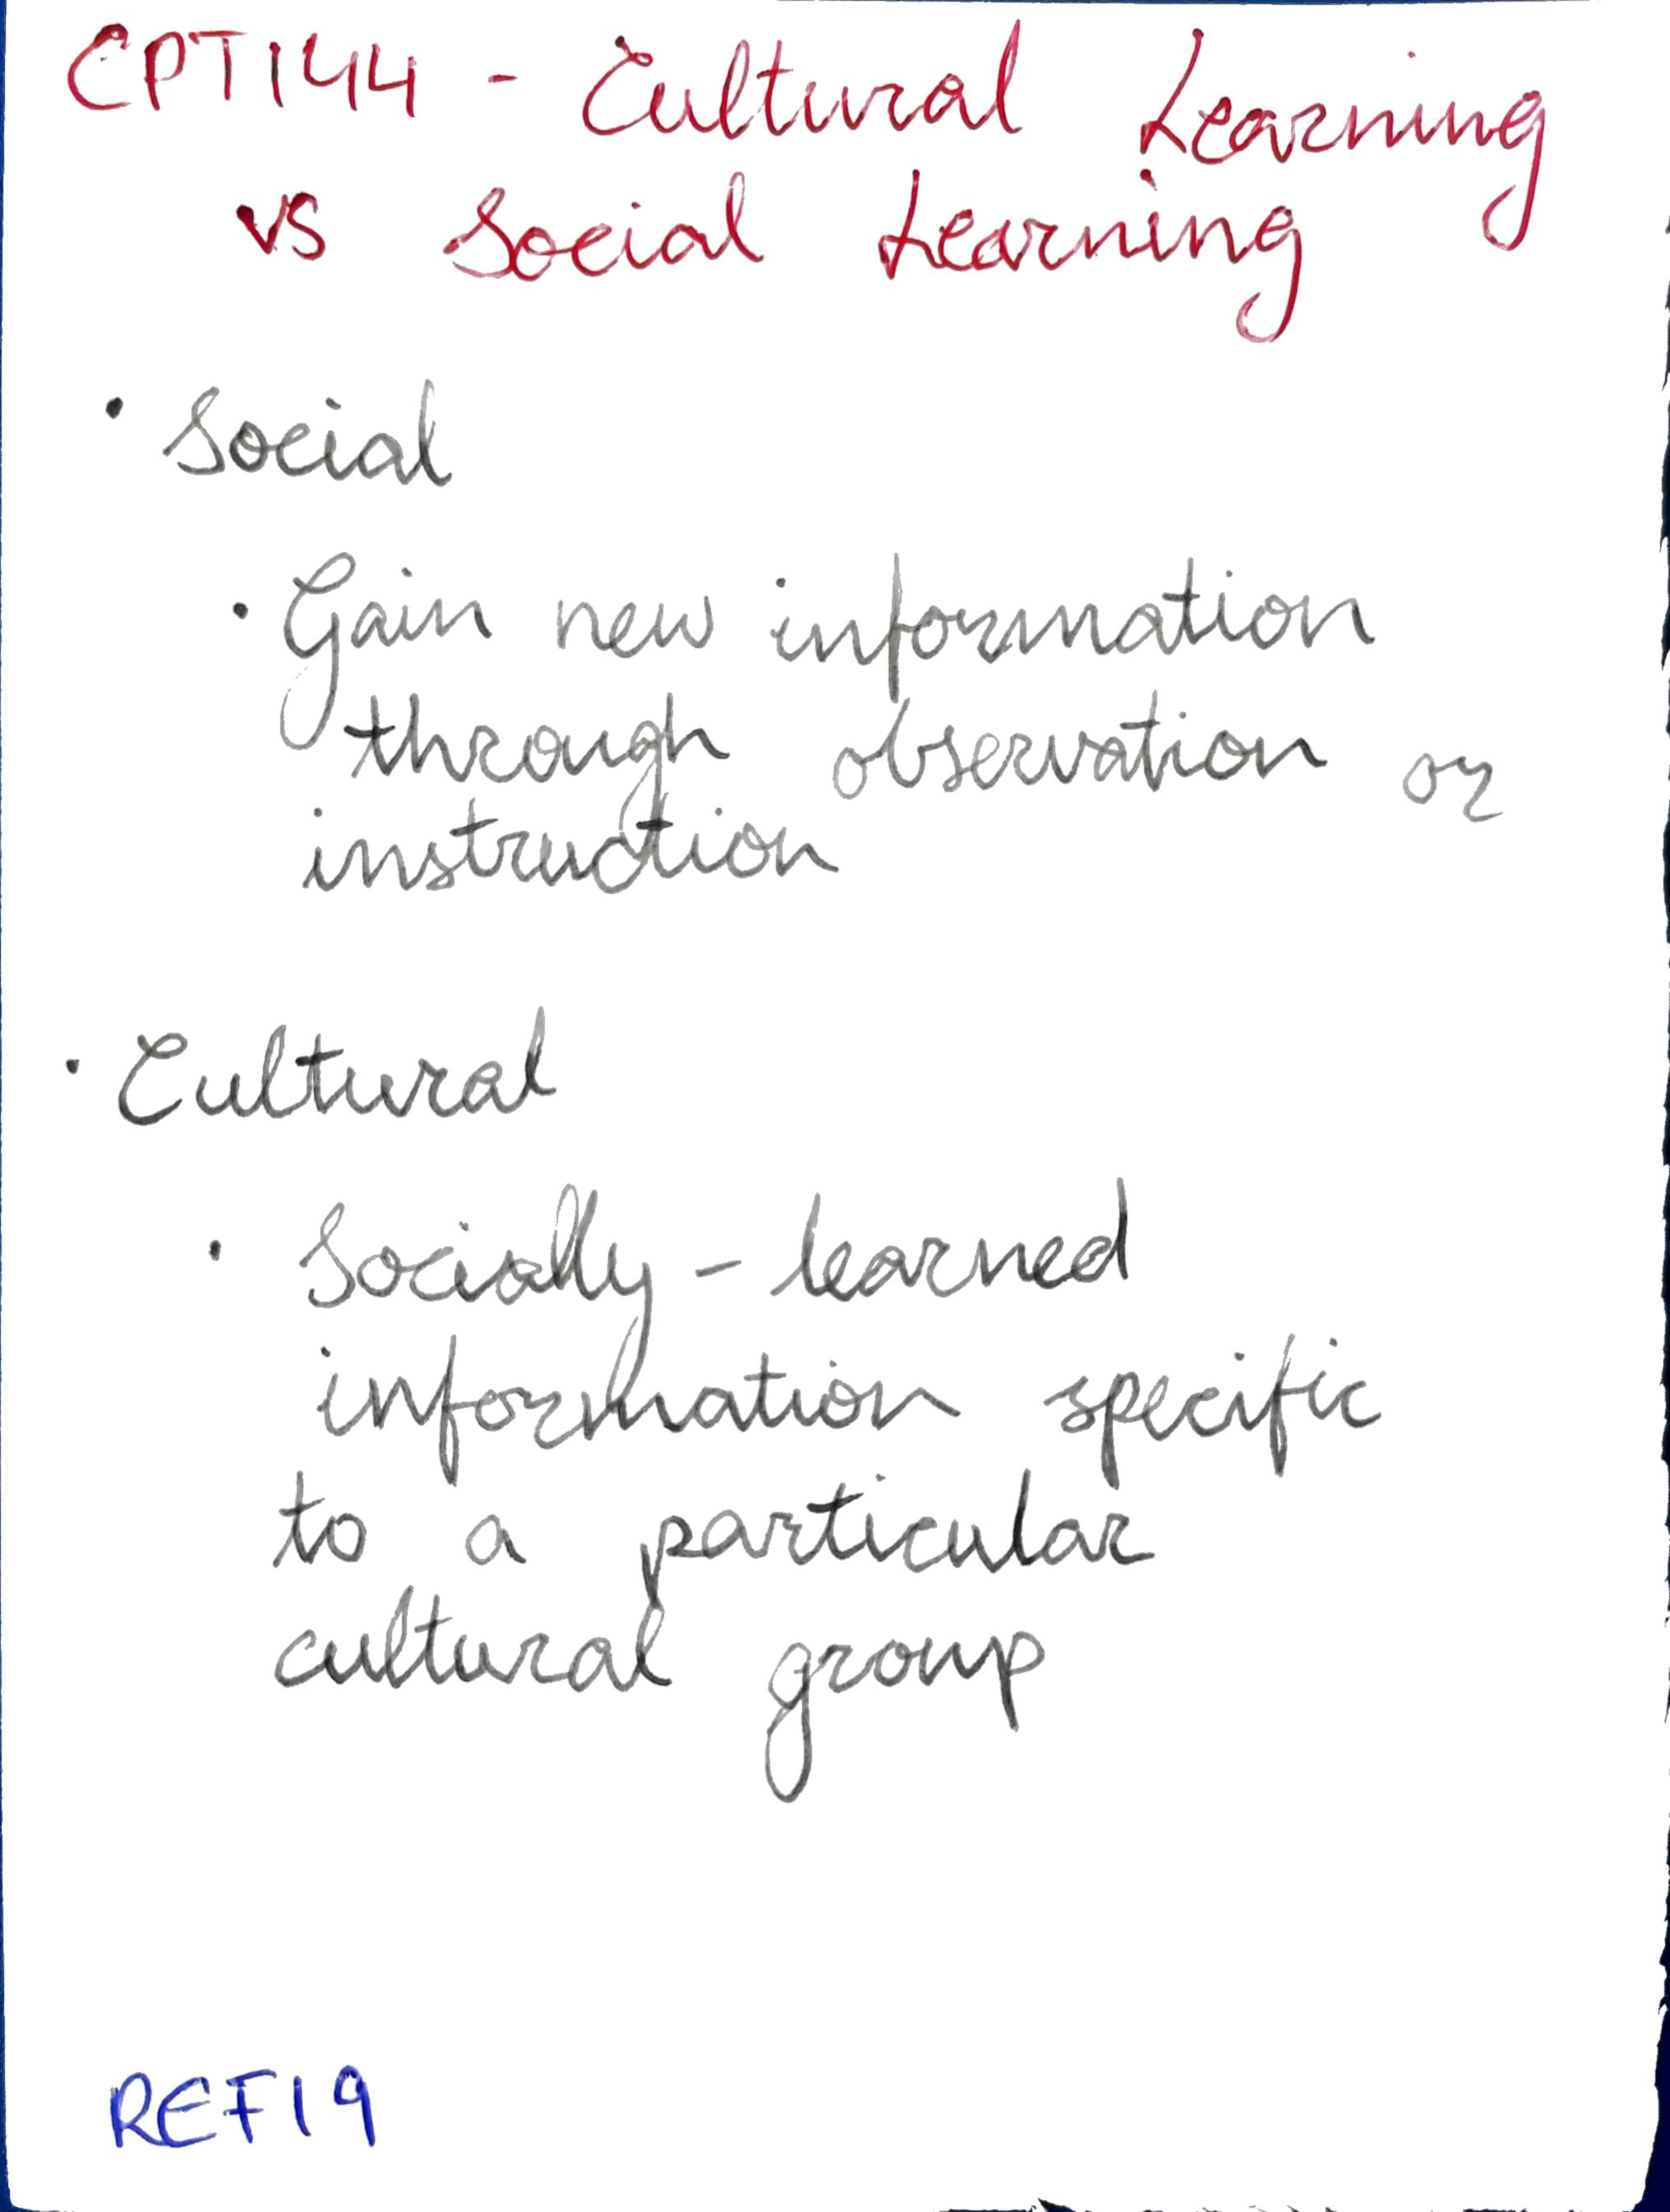 CPT144 - Cultural Learning
vs Social Learning
• Social
• Gain new information
through observation or
instruction
• Cultural
• Socially - learned
information specific
to a particular
cultural group
REF19